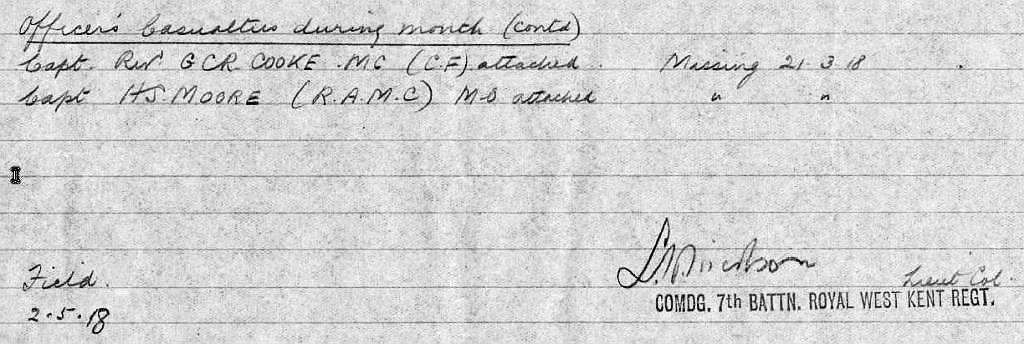 Officer's Casualties during month (contd)
Capt. Rev G C R COOKE . MC (C.F) attached . Missing 21.3.18 .
Capt H.S. MOORE (R.A.M.C) M.O attached " "
Field.
Lieut Col.
COMDG. 7th BATTN. ROYAL WEST KENT REGT.
2.5.18